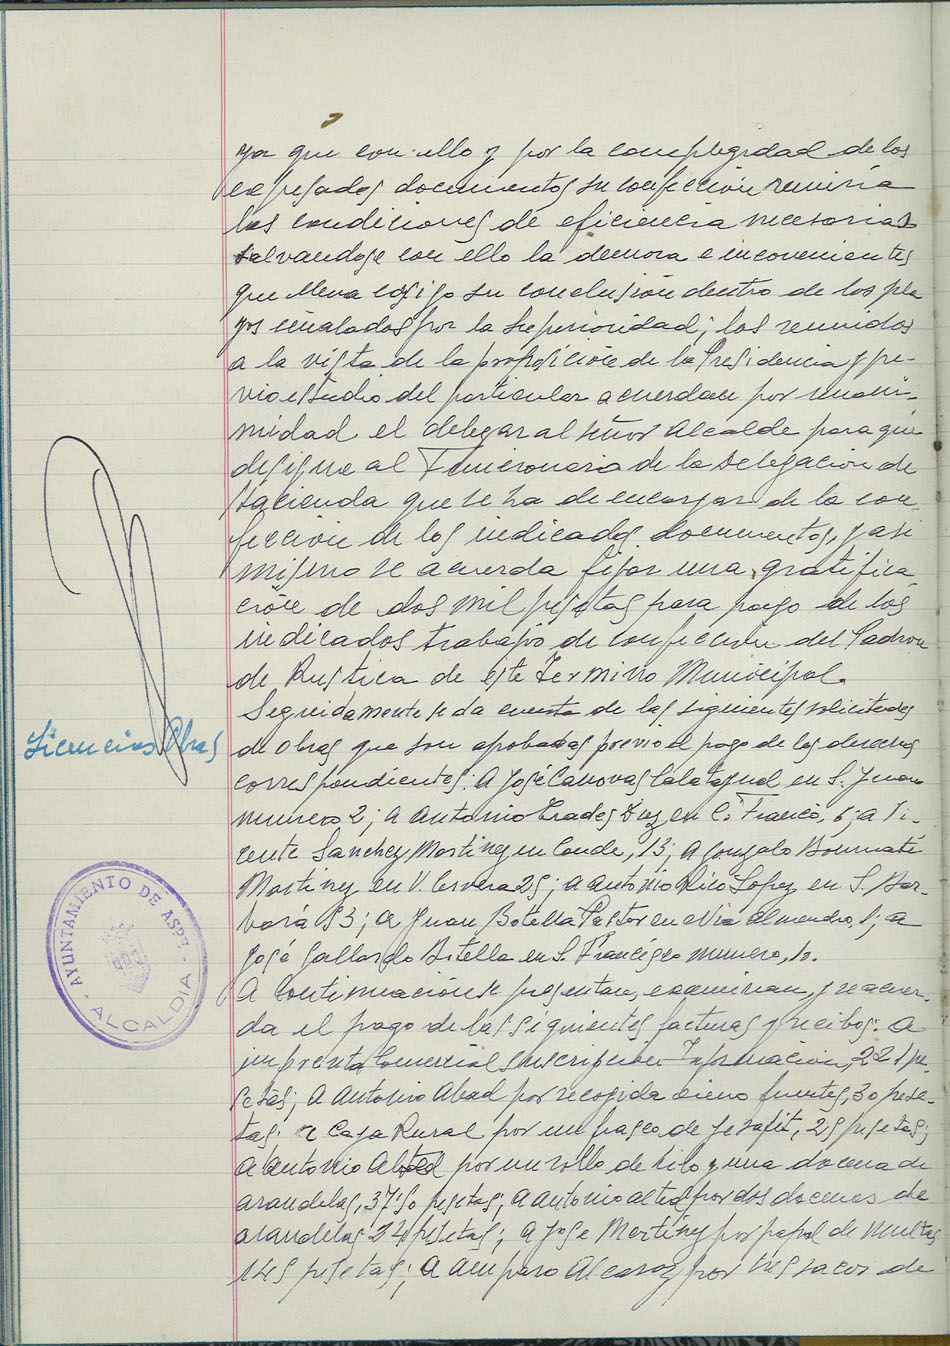 ya que con ello y por la complegidad de los
expresados documentos su confección reuniria
las condiciones de eficiencia necesarias
salvandose con ello la demora e inconvenientes
que lleva consigo su conclusión dentro de los pla
zos señalados por la Superioridad; los reunidos
a la vista de la proposición de la Presidencia y pre-
vio estudio del particular acuerdan por unani-
midad el delegar al señor Alcalde para que
designe al Funcionario de la Delegación de
Hacienda que se ha de encargar de la con
fección de los indicados documentos, y asi
mismo se acuerda fijar una gratifica
ción de dos mil pesetas para pago de los
indicados trabajos de confección del Padron
de Rustica de éste Termino Municipal.
Seguidamente se da cuenta de las siguientes solicitudes
Licencias Obras
de Obras que son aprobadas previo el pago de los derechos
correspondientes: A José Canovas Calatayud en S. Juan
numero 2; a Antonio Prades Diez en C. Franco, 6; a Vi-
cente Sanchez Martinez en Conde, 13; a Gonzalo Bonmati
Martinez en V. Cervera 25; a Antonio Rico Lopez en S. Bar-
bara 53; a Juan Botella Pastor en Almendro, 1; a
José Gallardo Botella en S. Francisco numero, 10.
AYUNTAMIENTO DE ASPE - ALCALDIA -
A Continuación se presentan, examinan, y se acuer-
da el pago de las siguientes facturas y recibos: A
imprenta Comercial suscripción Información, 221 pe-
setas; a Antonio Abad por recogida cieno fuentes, 30 pese-
tas; a Caja Rural por un saco de, 25 pesetas;
a Antonio por un rollo de hilo y una docena de
arandelas, 37'50 pesetas; a Antonio por dos docenas de
arandelas 24 pesetas; a Jose Martinez por papel de multas
145 pesetas; a Amparo Alcaraz por tres sacos de